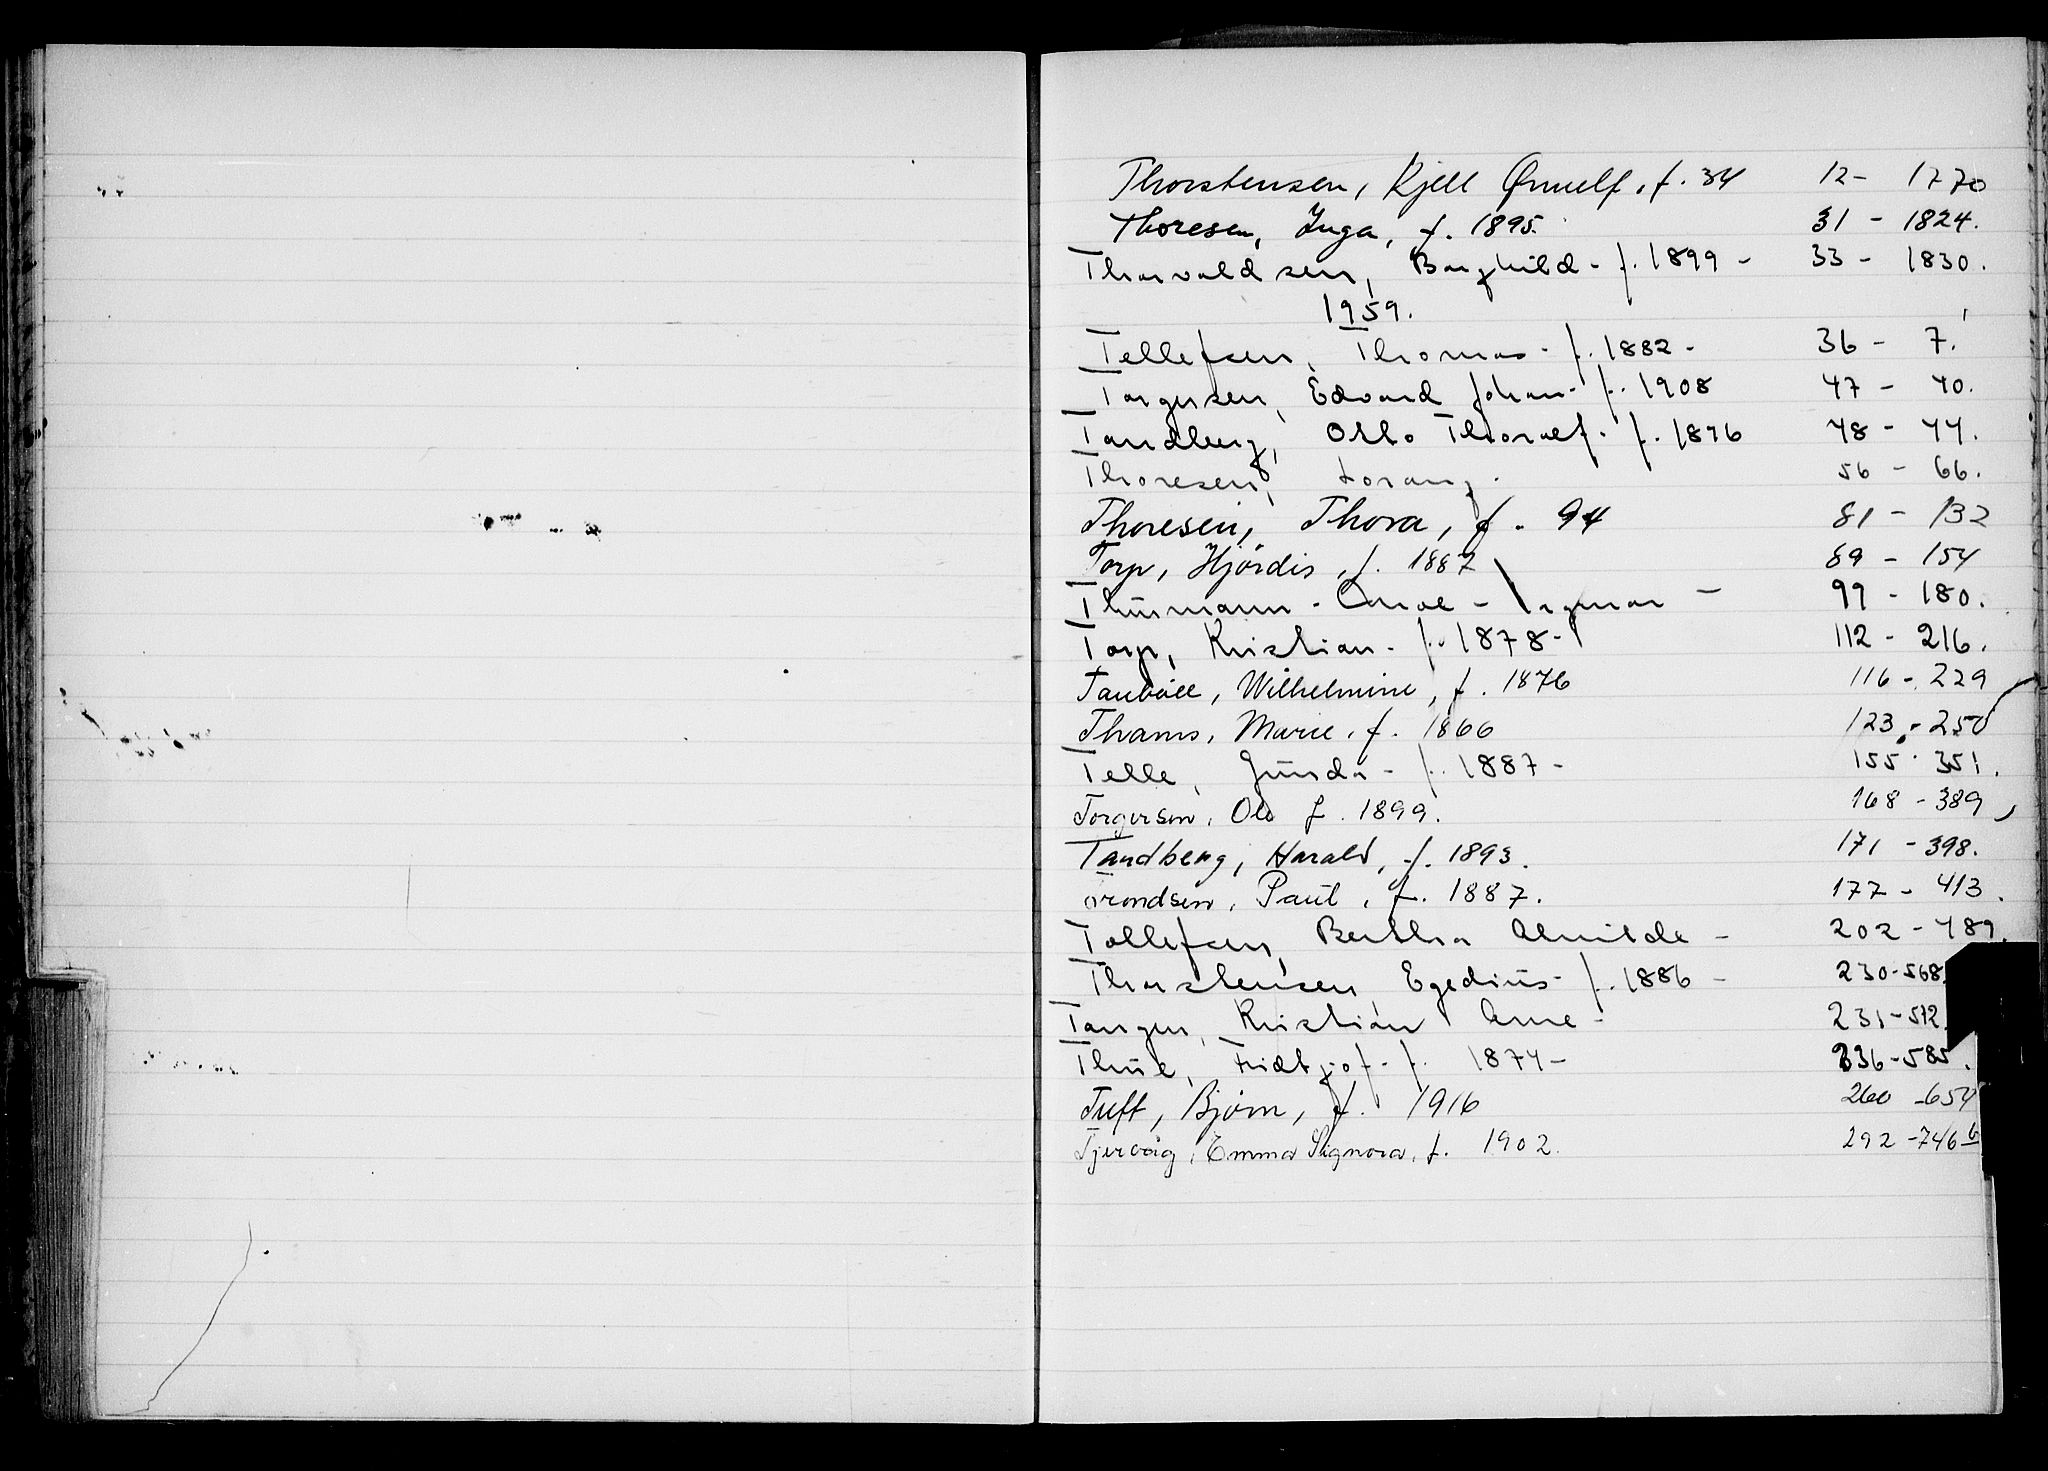 Thorstensen, Kjell Ørnulf, f. 34 12 - 1770
Thoresen, Inga, f. 1895. 31 - 1824.
Thorvaldsen, Borghild - f. 1899 - 33 - 1830.
1959.
Tellefsen, Thomas - f. 1882 - 36 - 7.
Torgersen, Edvard Johan - f. 1908 47 - 40.
Tandberg, Otto Thoralf - f. 1876 48 - 44.
Thoresen, Lorang - 56 - 66.
Thoresen, Thora, f. 94 81 - 132
Torp, Hjördis, f. 1887 89 - 154
Thurmann - Ingvar - 99 - 180.
Torp, Kristian - f. 1878 - 112 - 216.
Tauböll, Wilhelmine, f. 1876 116 - 229
Thams, Marie, f. 1866 123 - 250
Telle, Gunda - f. 1887 - 155 - 351.
Torgersen, Ole f. 1899. 168 - 389
Tandberg, Harald, f. 1893. 171 - 398.
Trondsen, Paul, f. 1887. 177 - 413.
Tollefsen, Bertha Alvilde - 202 - 489.
Thorstensen, Egedius - f. 1886 - 230 - 568.
Tangen, Kristian Arne - 231 - 572.
Thue, Fridtjof - f. 1874 - 236 - 585.
Tuft, Bjørn, f. 1916 260 - 654
Tjervåg, Emma Signora, f. 1902. 292 - 746 b